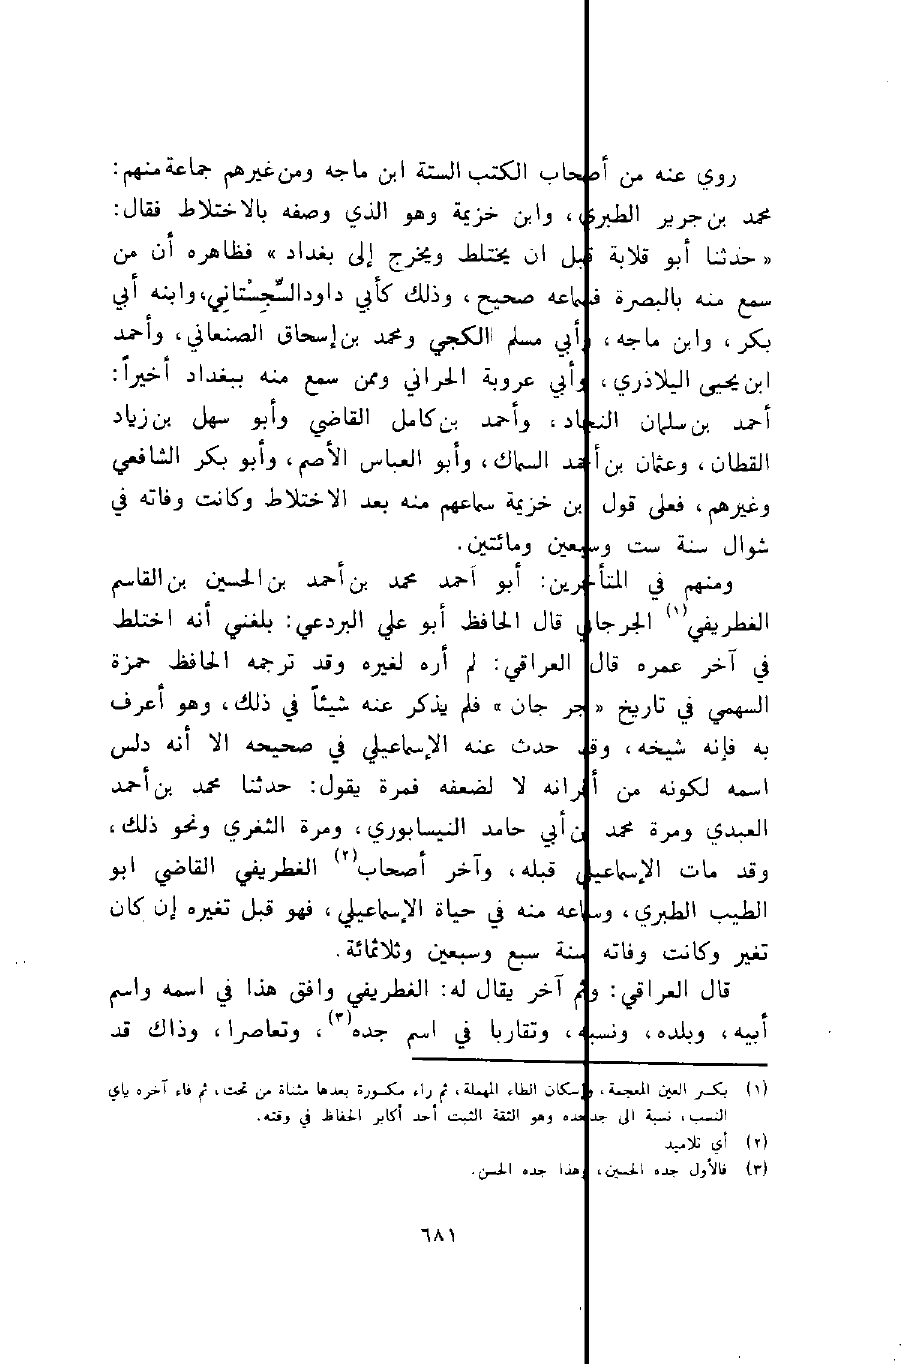 روي عنه من أصحاب الكتب الستة ابن ماجه ومن غيرهم جماعة منهم:
محمد بن جرير الطبري، وابن خزيمة وهو الذي وصفه بالاختلاط فقال:
« حدثنا أبو قلابة قبل ان يختلط ويخرج إلى بغداد » فظاهره أن من
سمع منه بالبصرة فسماعه صحيح، وذلك كأبي داود السِّجِسْتاني، وابنه أبي
بكر، وابن ماجه، وأبي مسلم الكجي ومحمد بن إسحاق الصنعاني، وأحمد
ابن يحيى البلاذري، وأبي عروبة الحراني وممن سمع منه ببغداد أخيراً:
أحمد بن سلمان النجاد، وأحمد بن كامل القاضي وأبو سهل بن زياد
القطان، وعثمان بن أحمد السماك، وأبو العباس الأصم، وأبو بكر الشافعي
وغيرهم، فعلى قول ابن خزيمة سماعهم منه بعد الاختلاط وكانت وفاته في
شوال سنة ست وسبعين ومائتين.
ومنهم في المتأخرين: أبو أحمد محمد بن أحمد بن الحسين بن القاسم
الغطريفي(١) الجرجاني قال الحافظ أبو علي البردعي: بلغني أنه اختلط
في آخر عمره قال العراقي: لم أره لغيره وقد ترجمه الحافظ حمزة
السهمي في تاريخ « جر جان » فلم يذكر عنه شيئاً في ذلك، وهو أعرف
به فإنه شيخه، وقد حدث عنه الإسماعيلي في صحيحه الا أنه دلس
اسمه لكونه من أقرانه لا لضعفه فمرة يقول: حدثنا محمد بن أحمد
العبدي ومرة محمد بن أبي حامد النيسابوري، ومرة الثغري ونحو ذلك،
وقد مات الإسماعيلي قبله، وآخر أصحاب(٢) الغطريفي القاضي ابو
الطيب الطبري، وسماعه منه في حياة الإسماعيلي، فهو قبل تغيره إن كان
تغير وكانت وفاته سنة سبع وسبعين وثلاثمائة.
قال العراقي: وثم آخر يقال له: الغطريفي وافق هذا في اسمه واسم
أبيه، وبلده، ونسبه، وتقاربا في اسم جده(٣)، وتعاصرا، وذاك قد
(١) بكسر الغين المعجمة، وإسكان الطاء المهملة، ثم راء مكسورة بعدها مثناة من تحت، ثم فاء آخره ياي
النسب، نسبة الى جد وهو الثقة الثبت أحد أكابر الحفاظ في وقته.
(٢) أي تلاميد
(٣) فالأول جده الحسين، وهذا جده الحسن.
٦٨١